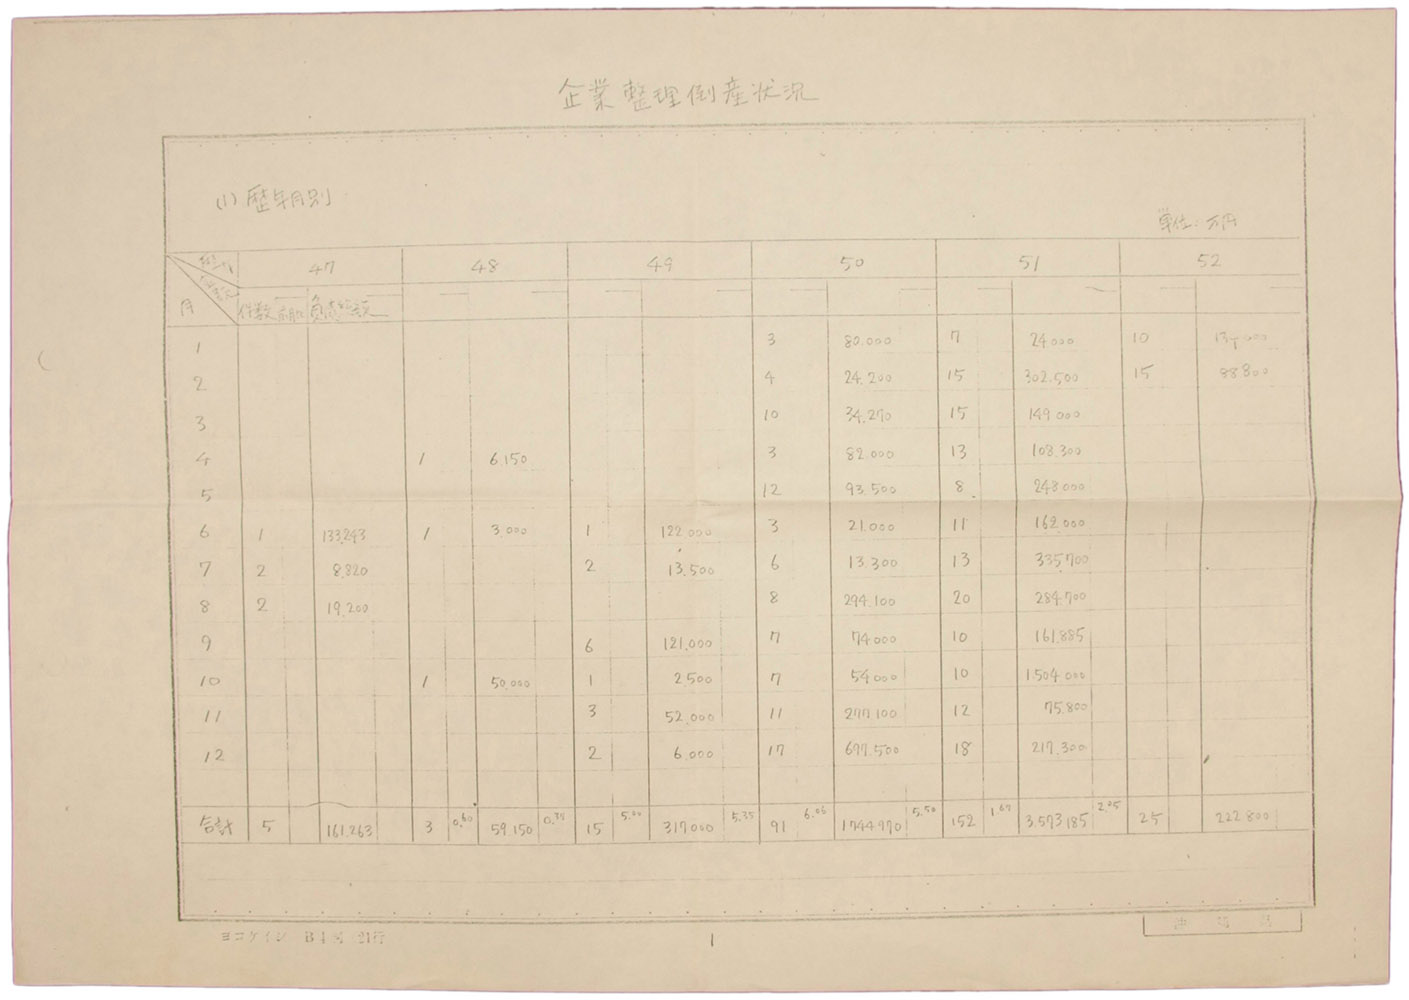 企業整理倒産状況
(1) 歴年月別
単位:万円
47 48 49 50 51 52
月 件数 負債総額
1 3 80.000 7 24000 10
2 4 24.200 15 302.500 15 88800
3 10 34.270 15 149000
4 1 6.150 3 82.000 13 103.300
5 12 93.500 8 243000
6 1 133.243 1 3.000 1 122.000 3 21.000 11 162.000
7 2 8.820 2 13.500 6 13.300 13 335700
8 2 19.200 8 294.100 20 284.700
9 6 121.000 7 74000 10 161.885
10 1 50.000 1 2500 7 54000 10 1.504000
11 3 52.000 11 277100 12 75.800
12 2 6.000 17 697.500 18 217.300
合計 5 161.263 3 0.60 59.150 15 5.00 317000 5.35 91 6.06 1744970 5.50 152 1.67 3.573185 2.05 25 222800
ヨコケイン B4 21行
1
沖縄県